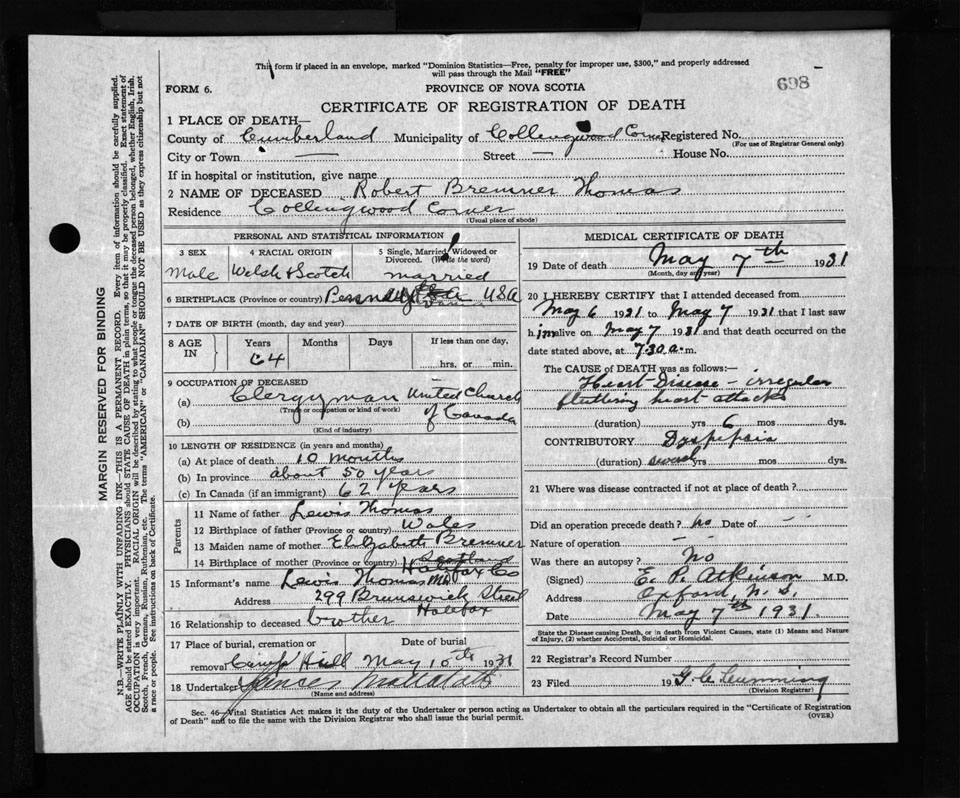 This form if placed in an envelope, marked "Dominion Statistics—Free, penalty for improper use, $300," and properly addressed
will pass through the Mail "FREE"
698
FORM 6.
PROVINCE OF NOVA SCOTIA
CERTIFICATE OF REGISTRATION OF DEATH
1 PLACE OF DEATH—
County of Cumberland Municipality of Collingwood Corner Registered No.
(For use of Registrar General only)
City or Town — Street — House No.
If in hospital or institution, give name
2 NAME OF DECEASED Robert Bremner Thomas
Residence Collingwood Corner
(Usual place of abode)
PERSONAL AND STATISTICAL INFORMATION
3 SEX 4 RACIAL ORIGIN 5 Single, Married, Widowed or
Divorced. (Write the word)
Male Welsh & Scotch married
6 BIRTHPLACE (Province or country) USA
7 DATE OF BIRTH (month, day and year)
8 AGE IN Years Months Days If less than one day,
64 hrs. or min.
9 OCCUPATION OF DECEASED
(a) Clergyman United Church
(Trade or occupation or kind of work) of Canada
(b)
(Kind of industry)
10 LENGTH OF RESIDENCE (in years and months)
(a) At place of death 10 months
(b) In province about 50 years
(c) In Canada (if an immigrant) 62 years
Parents
11 Name of father Lewis Thomas
12 Birthplace of father (Province or country) Wales
13 Maiden name of mother Elizabeth Bremner
14 Birthplace of mother (Province or country) Scotland
Halifax Co
15 Informant's name Lewis Thomas MD
Address 299 Brunswick Street
Halifax
16 Relationship to deceased brother
17 Place of burial, cremation or Date of burial
removal Camp Hill May 10th 1931
18 Undertaker
(Name and address)
MEDICAL CERTIFICATE OF DEATH
19 Date of death May 7th 1931
(Month, day and year)
20 I HEREBY CERTIFY that I attended deceased from
May 6 1931 to May 7 1931 that I last saw
him alive on May 7 1931 and that death occurred on the
date stated above, at 7.30 a.m.
The CAUSE of DEATH was as follows:—
Heart Disease – irregular
fluttering heart attacks
(duration) yrs 6 mos dys.
CONTRIBUTORY Dyspepsia
(duration) several yrs mos dys.
21 Where was disease contracted if not at place of death?
Did an operation precede death? no Date of – –
Nature of operation – –
Was there an autopsy? No
(Signed) E. P. Atkinson M.D.
Address Oxford, N.S.
Date May 7th 1931.
State the Disease causing Death, or in death from Violent Causes, state (1) Means and Nature
of Injury, (2) whether Accidental, Suicidal or Homicidal.
22 Registrar's Record Number
23 Filed 19 G. C. Cumming
(Division Registrar)
Sec. 46—Vital Statistics Act makes it duty of the Undertaker or person acting as Undertaker to obtain all the particulars required in the "Certificate of Registration
of Death" and to file the same with the Division Registrar who shall issue the burial permit.
(OVER)
MARGIN RESERVED FOR BINDING
N.B.—WRITE PLAINLY WITH UNFADING INK—THIS IS A PERMANENT RECORD. Every item of information should be carefully supplied.
AGE should be stated EXACTLY. PHYSICIANS should STATE CAUSE OF DEATH in plain terms, so that it may be properly classified. Exact statement of
OCCUPATION is very important. RACIAL ORIGIN will be described by stating to what people or tongue the deceased person belonged, whether English, Irish,
Scotch, French, German, Russian, Ruthenian, etc. The terms "AMERICAN" or "CANADIAN" SHOULD NOT BE USED as they express citizenship but not
a race or people. See instructions on back of Certificate.